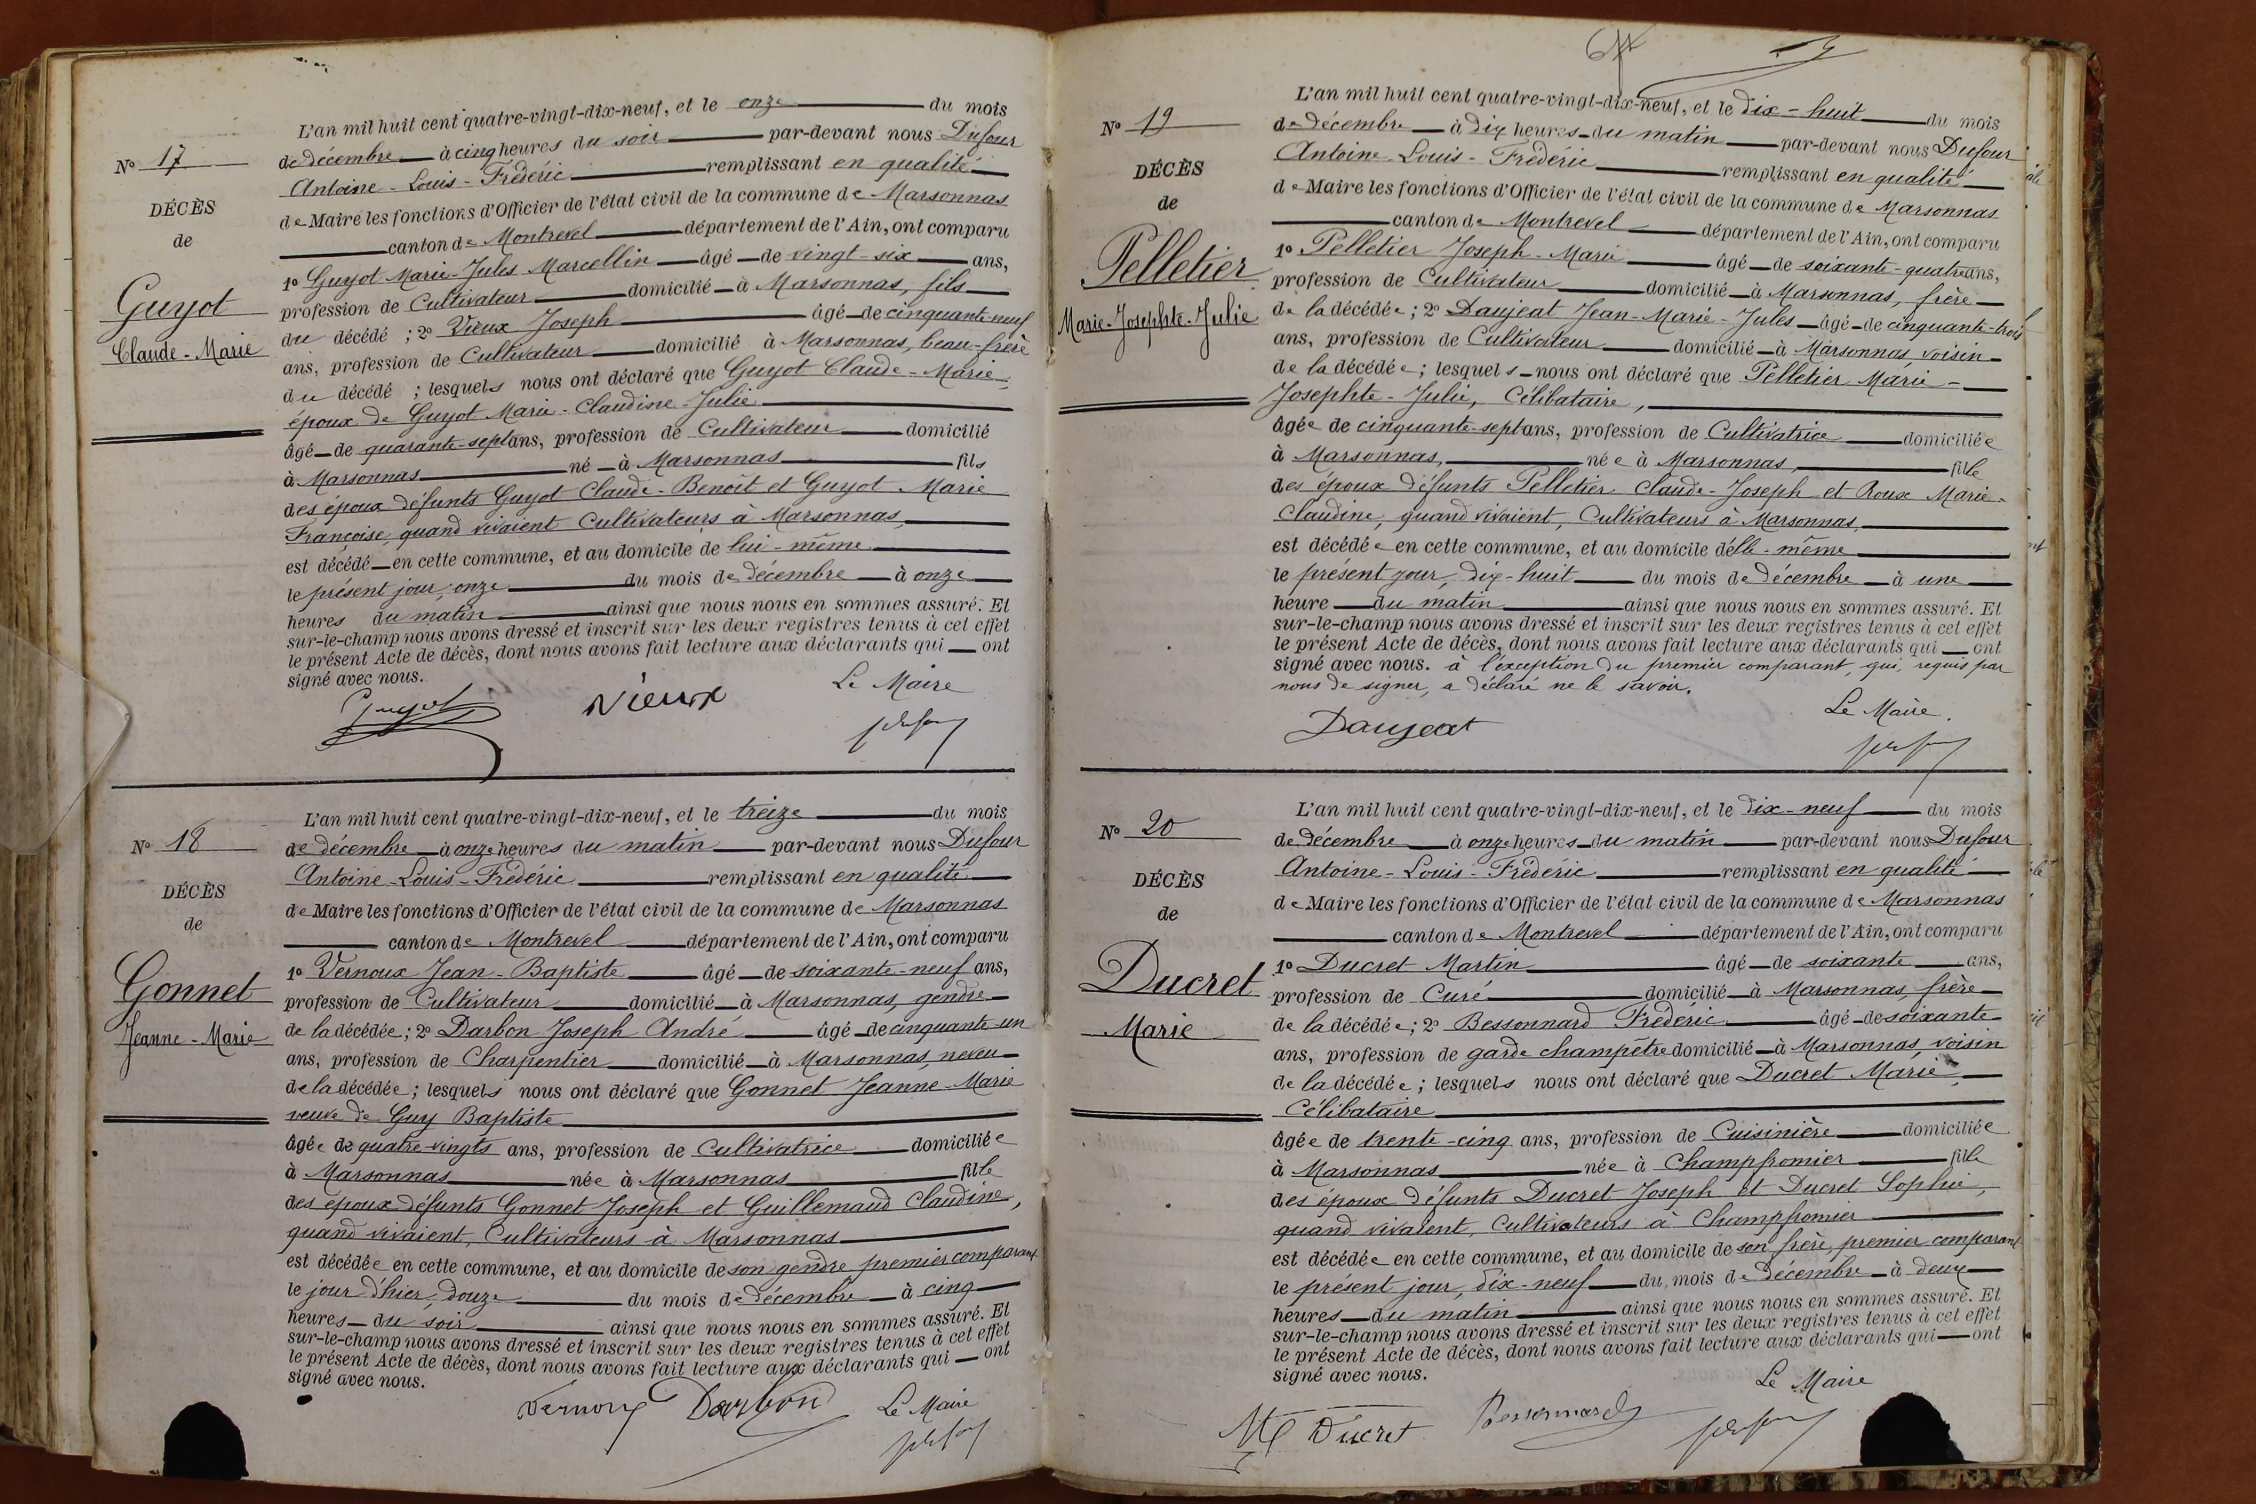 L'an mil huit cent quatre-vingt-dix-neuf, et le onze du mois
N° 17
de décembre à cinq heures du soir par-devant nous Dufour
Antoine-Louis-Frédéric remplissant en qualité
DÉCÈS
de Maire les fonctions d'Officier de l'état civil de la commune de Marsonnas
de
canton de Montrevel département de l'Ain, ont comparu
1° Guyot Marie-Jules Marcellin âgé de vingt-six ans,
Guyot
profession de Cultivateur domicilié à Marsonnas, fils
du décédé ; 2° Vieux Joseph âgé de cinquante-neuf
Claude-Marie
ans, profession de Cultivateur domicilié à Marsonnas, beau-frère
du décédé ; lesquels nous ont déclaré que Guyot Claude-Marie
époux de Guyot Marie-Claudine-Julie
âgé de quarante-sept ans, profession de Cultivateur domicilié
à Marsonnas né à Marsonnas fils
des époux défunts Guyot Claude-Benoit et Guyot Marie
Françoise, quand vivaient Cultivateurs à Marsonnas,
est décédé en cette commune, et au domicile de lui-même
le présent jour, onze du mois de décembre à onze
heures du matin ainsi que nous nous en sommes assuré. Et
sur-le-champ nous avons dressé et inscrit sur les deux registres tenus à cet effet
le présent Acte de décès, dont nous avons fait lecture aux déclarants qui ont
signé avec nous.
Le Maire
Guyot Vieux
L'an mil huit cent quatre-vingt-dix-neuf, et le treize du mois
N° 18
de décembre à onze heures du matin par-devant nous Dufour
Antoine-Louis-Frédéric remplissant en qualité
DÉCÈS
de Maire les fonctions d'Officier de l'état civil de la commune de Marsonnas
de
canton de Montrevel département de l'Ain, ont comparu
1° Vernoux Jean-Baptiste âgé de soixante-neuf ans,
Gonnet
profession de Cultivateur domicilié à Marsonnas, gendre
de la décédée ; 2° Darbon Joseph André âgé de cinquante-un
Jeanne-Marie
ans, profession de Charpentier domicilié à Marsonnas, neveu
de la décédée ; lesquels nous ont déclaré que Gonnet Jeanne-Marie
veuve de Guy Baptiste
âgée de quatre-vingts ans, profession de Cultivatrice domiciliée
à Marsonnas née à Marsonnas fille
des époux défunts Gonnet Joseph et Guillemaud Claudine,
quand vivaient, Cultivateurs à Marsonnas
est décédée en cette commune, et au domicile de son gendre premier comparant
le jour d'hier, douze du mois de décembre à cinq
heures du soir ainsi que nous nous en sommes assuré. Et
sur-le-champ nous avons dressé et inscrit sur les deux registres tenus à cet effet
le présent Acte de décès, dont nous avons fait lecture aux déclarants qui ont
signé avec nous.
Vernoux Darbon Le Maire
L'an mil huit cent quatre-vingt-dix-neuf, et le dix-huit du mois
N° 19
de décembre à dix heures du matin par-devant nous Dufour
Antoine-Louis-Frédéric remplissant en qualité
DÉCÈS
de Maire les fonctions d'Officier de l'état civil de la commune de Marsonnas
de
canton de Montrevel département de l'Ain, ont comparu
1° Pelletier Joseph-Marie âgé de soixante-quatre ans,
Pelletier
profession de Cultivateur domicilié à Marsonnas, frère
de la décédée ; 2° Daujeat Jean-Marie-Jules âgé de cinquante-trois
Marie-Josephte-Julie
ans, profession de Cultivateur domicilié à Marsonnas, voisin
de la décédée ; lesquels nous ont déclaré que Pelletier Marie-
Josephte-Julie, Célibataire,
âgée de cinquante-sept ans, profession de Cultivatrice domiciliée
à Marsonnas, née à Marsonnas, fille
des époux défunts Pelletier Claude-Joseph et Roux Marie-
Claudine, quand vivaient, Cultivateurs à Marsonnas,
est décédée en cette commune, et au domicile d'elle-même
le présent jour, dix-huit du mois de décembre à une
heure du matin ainsi que nous nous en sommes assuré. Et
sur-le-champ nous avons dressé et inscrit sur les deux registres tenus à cet effet
le présent Acte de décès, dont nous avons fait lecture aux déclarants qui ont
signé avec nous. à l'éxception du premier comparant, qui, requis par
nous de signer, a déclaré ne le savoir.
Le Maire.
Daujeat
L'an mil huit cent quatre-vingt-dix-neuf, et le dix-neuf du mois
N° 20
de décembre à onze heures du matin par-devant nous Dufour
Antoine-Louis-Frédéric remplissant en qualité
DÉCÈS
de Maire les fonctions d'Officier de l'état civil de la commune de Marsonnas
de
canton de Montrevel département de l'Ain, ont comparu
1° Ducret Martin âgé de soixante ans,
Ducret
profession de Curé domicilié à Marsonnas, frère
de la décédée ; 2° Bessonnard Frédéric âgé de soixante
Marie
ans, profession de garde champêtre domicilié à Marsonnas, voisin
de la décédée ; lesquels nous ont déclaré que Ducret Marie,
Célibataire
âgée de trente-cinq ans, profession de Cuisinière domiciliée
à Marsonnas née à Champfromier fille
des époux défunts Ducret Joseph et Ducret Sophie,
quand vivaient, Cultivateurs à Champfromier
est décédée en cette commune, et au domicile de son frère, premier comparant
le présent jour, dix-neuf du mois de décembre à deux
heures du matin ainsi que nous nous en sommes assuré. Et
sur-le-champ nous avons dressé et inscrit sur les deux registres tenus à cet effet
le présent Acte de décès, dont nous avons fait lecture aux déclarants qui ont
signé avec nous.
Le Maire
Ducret Bessonnard